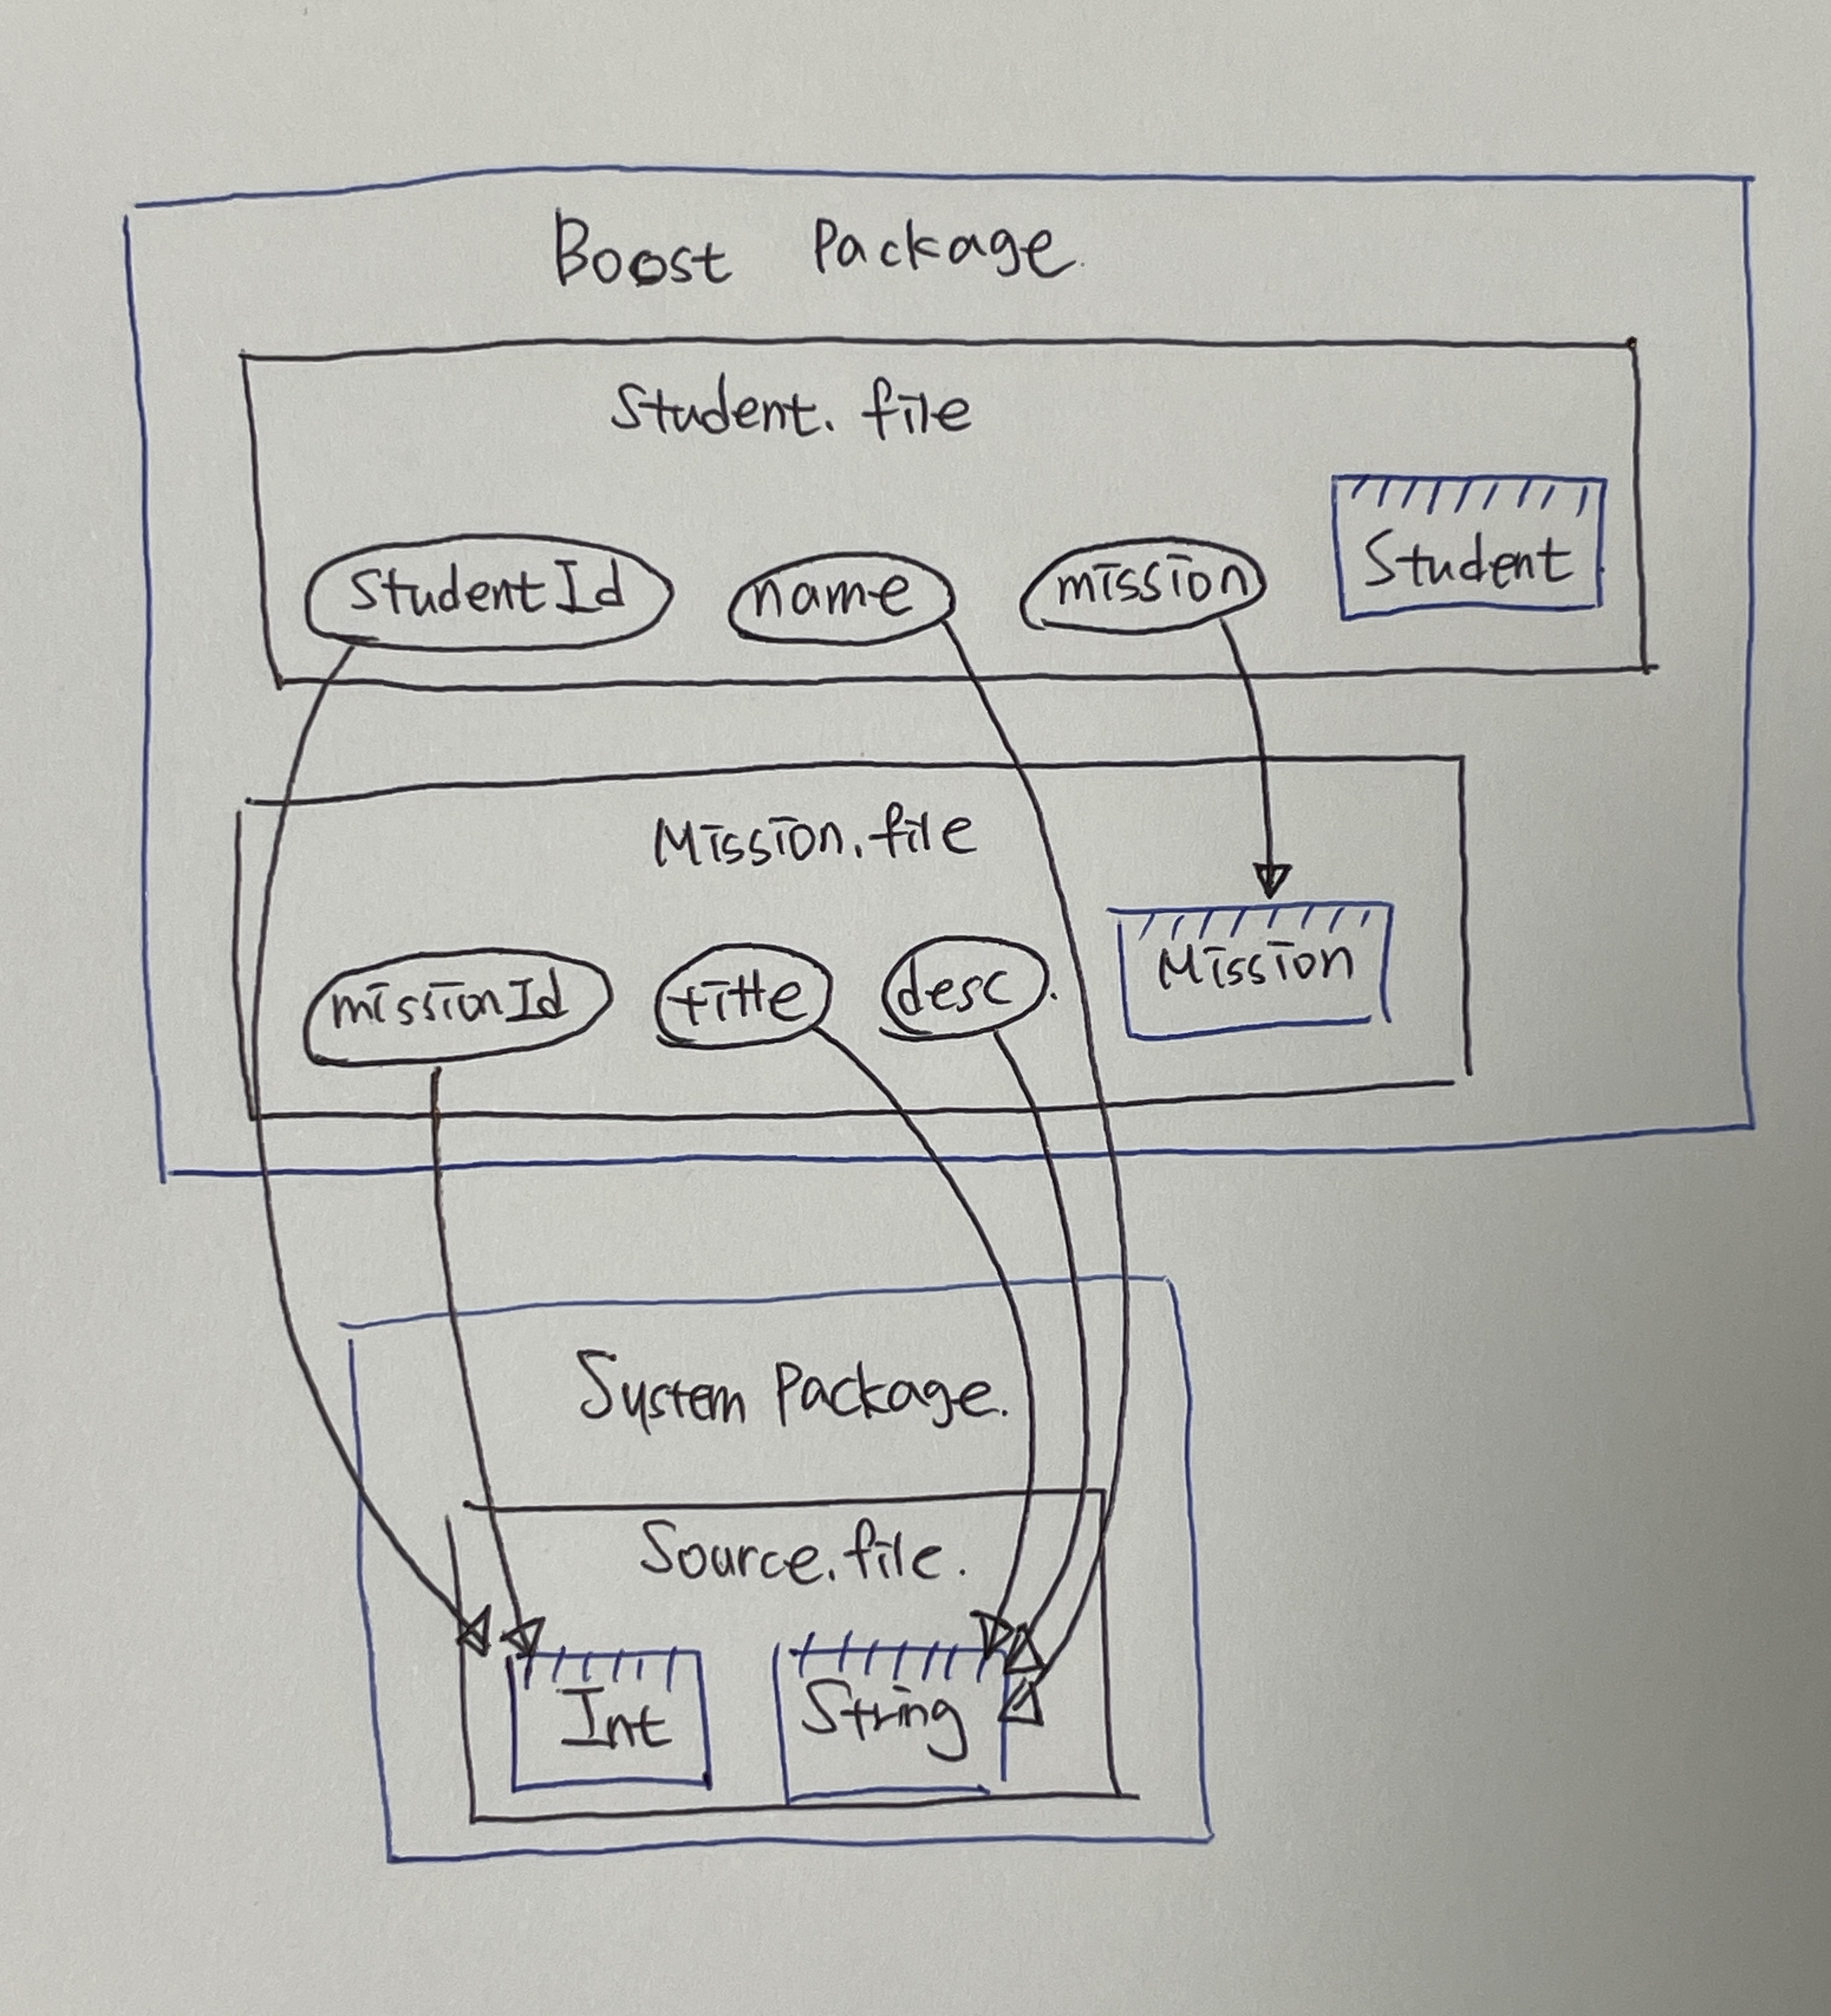 Boost Package.
Student. file
StudentId name mission Student
Mission. file
missionId title desc. Mission
System Package.
Source. file.
Int String